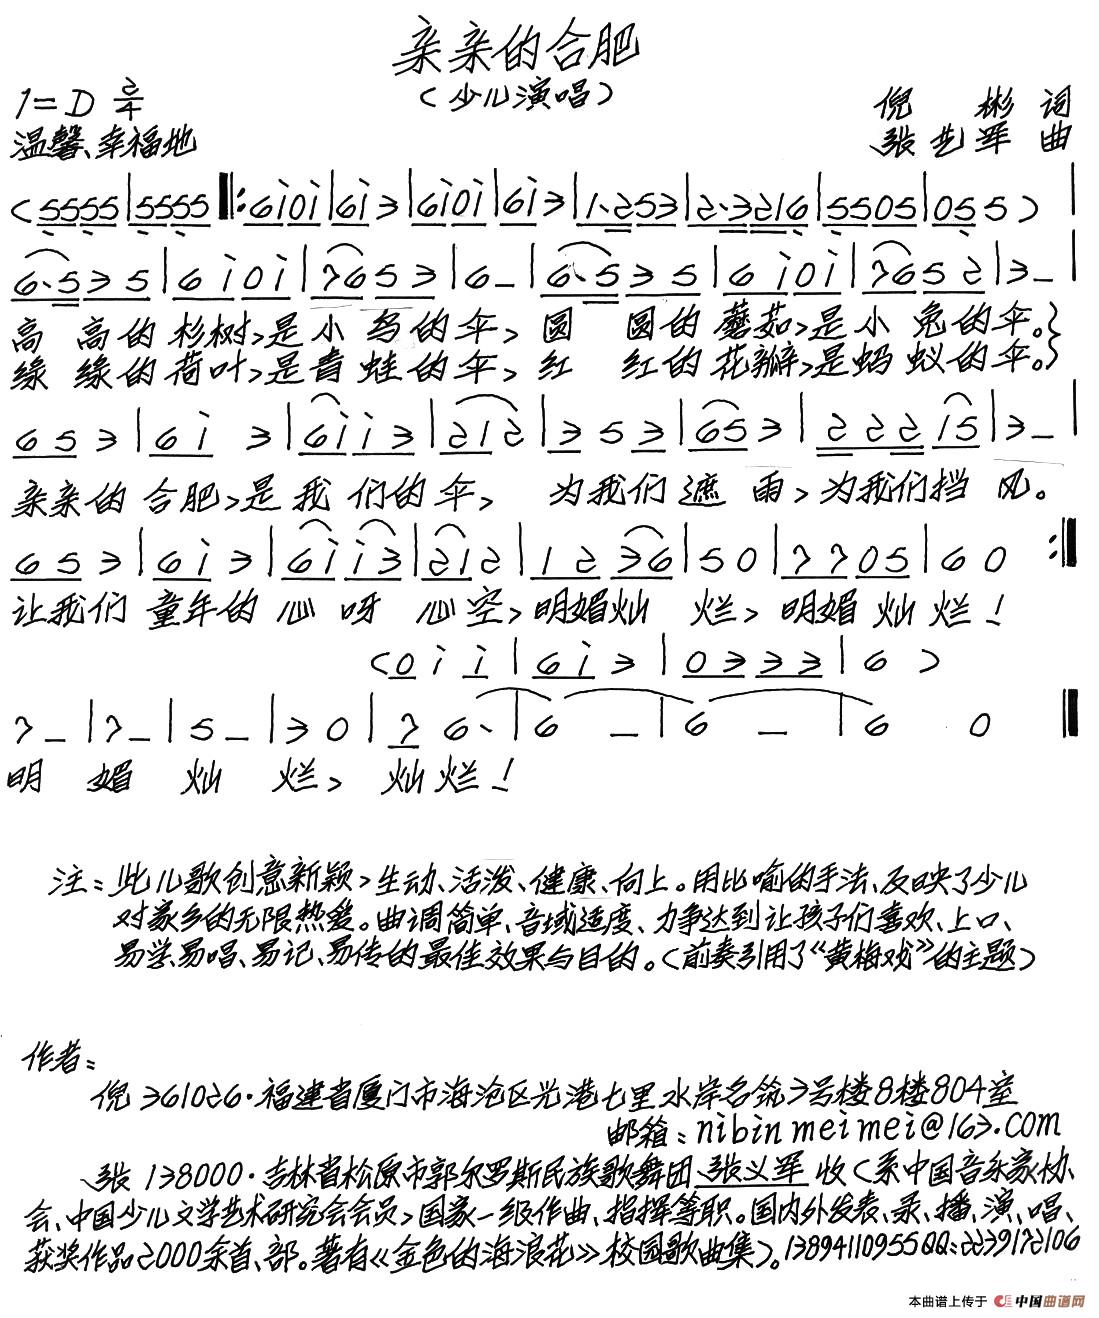 亲亲的合肥
(少儿演唱)
1=D 2/4
倪 彬 词
温馨、幸福地
张艺军 曲
(5555|5555‖:6i0i|6i3|6i0i|6i3|1·253|2·3216|5505|055)|
6·535|6i0i|7653|6-|6·535|6i0i|7652|3-|
高 高的杉树,是小鸟的伞, 圆 圆的蘑菇,是小兔的伞。}
绿 绿的荷叶,是青蛙的伞, 红 红的花瓣,是蚂蚁的伞。}
653|6i 3|6ii3|212|353|653|22215|3-|
亲亲的合肥,是我们的伞, 为我们遮雨,为我们挡风。
653|6i3|6ii3|212|1236|50|7705|60:‖
让我们童年的心呀 心空,明媚灿 烂,明媚灿烂!
(0ii|6i3|0333|6)
7-|7-|5-|30|76·|6-|6-|60‖
明 媚 灿 烂, 灿烂!
注:此儿歌创意新颖,生动、活泼、健康、向上。用比喻的手法、反映了少儿
对家乡的无限热爱。曲调简单、音域适度、力争达到让孩子们喜欢、上口、
易学、易唱、易记、易传的最佳效果与目的。(前奏引用了《黄梅戏》的主题)
作者:
倪 361026·福建省厦门市海沧区兴港七里水岸名筑3号楼8楼804室
邮箱:nibinmeimei@163.com
张 138000·吉林省松原市郭尔罗斯民族歌舞团 张义军 收(系中国音乐家协
会、中国少儿文学艺术研究会会员,国家一级作曲、指挥等职。国内外发表、录、播、演、唱、
获奖作品2000余首、部。著有《金色的海浪花》校园歌曲集)。13894110955QQ:2239172106
本曲谱上传于 中国曲谱网